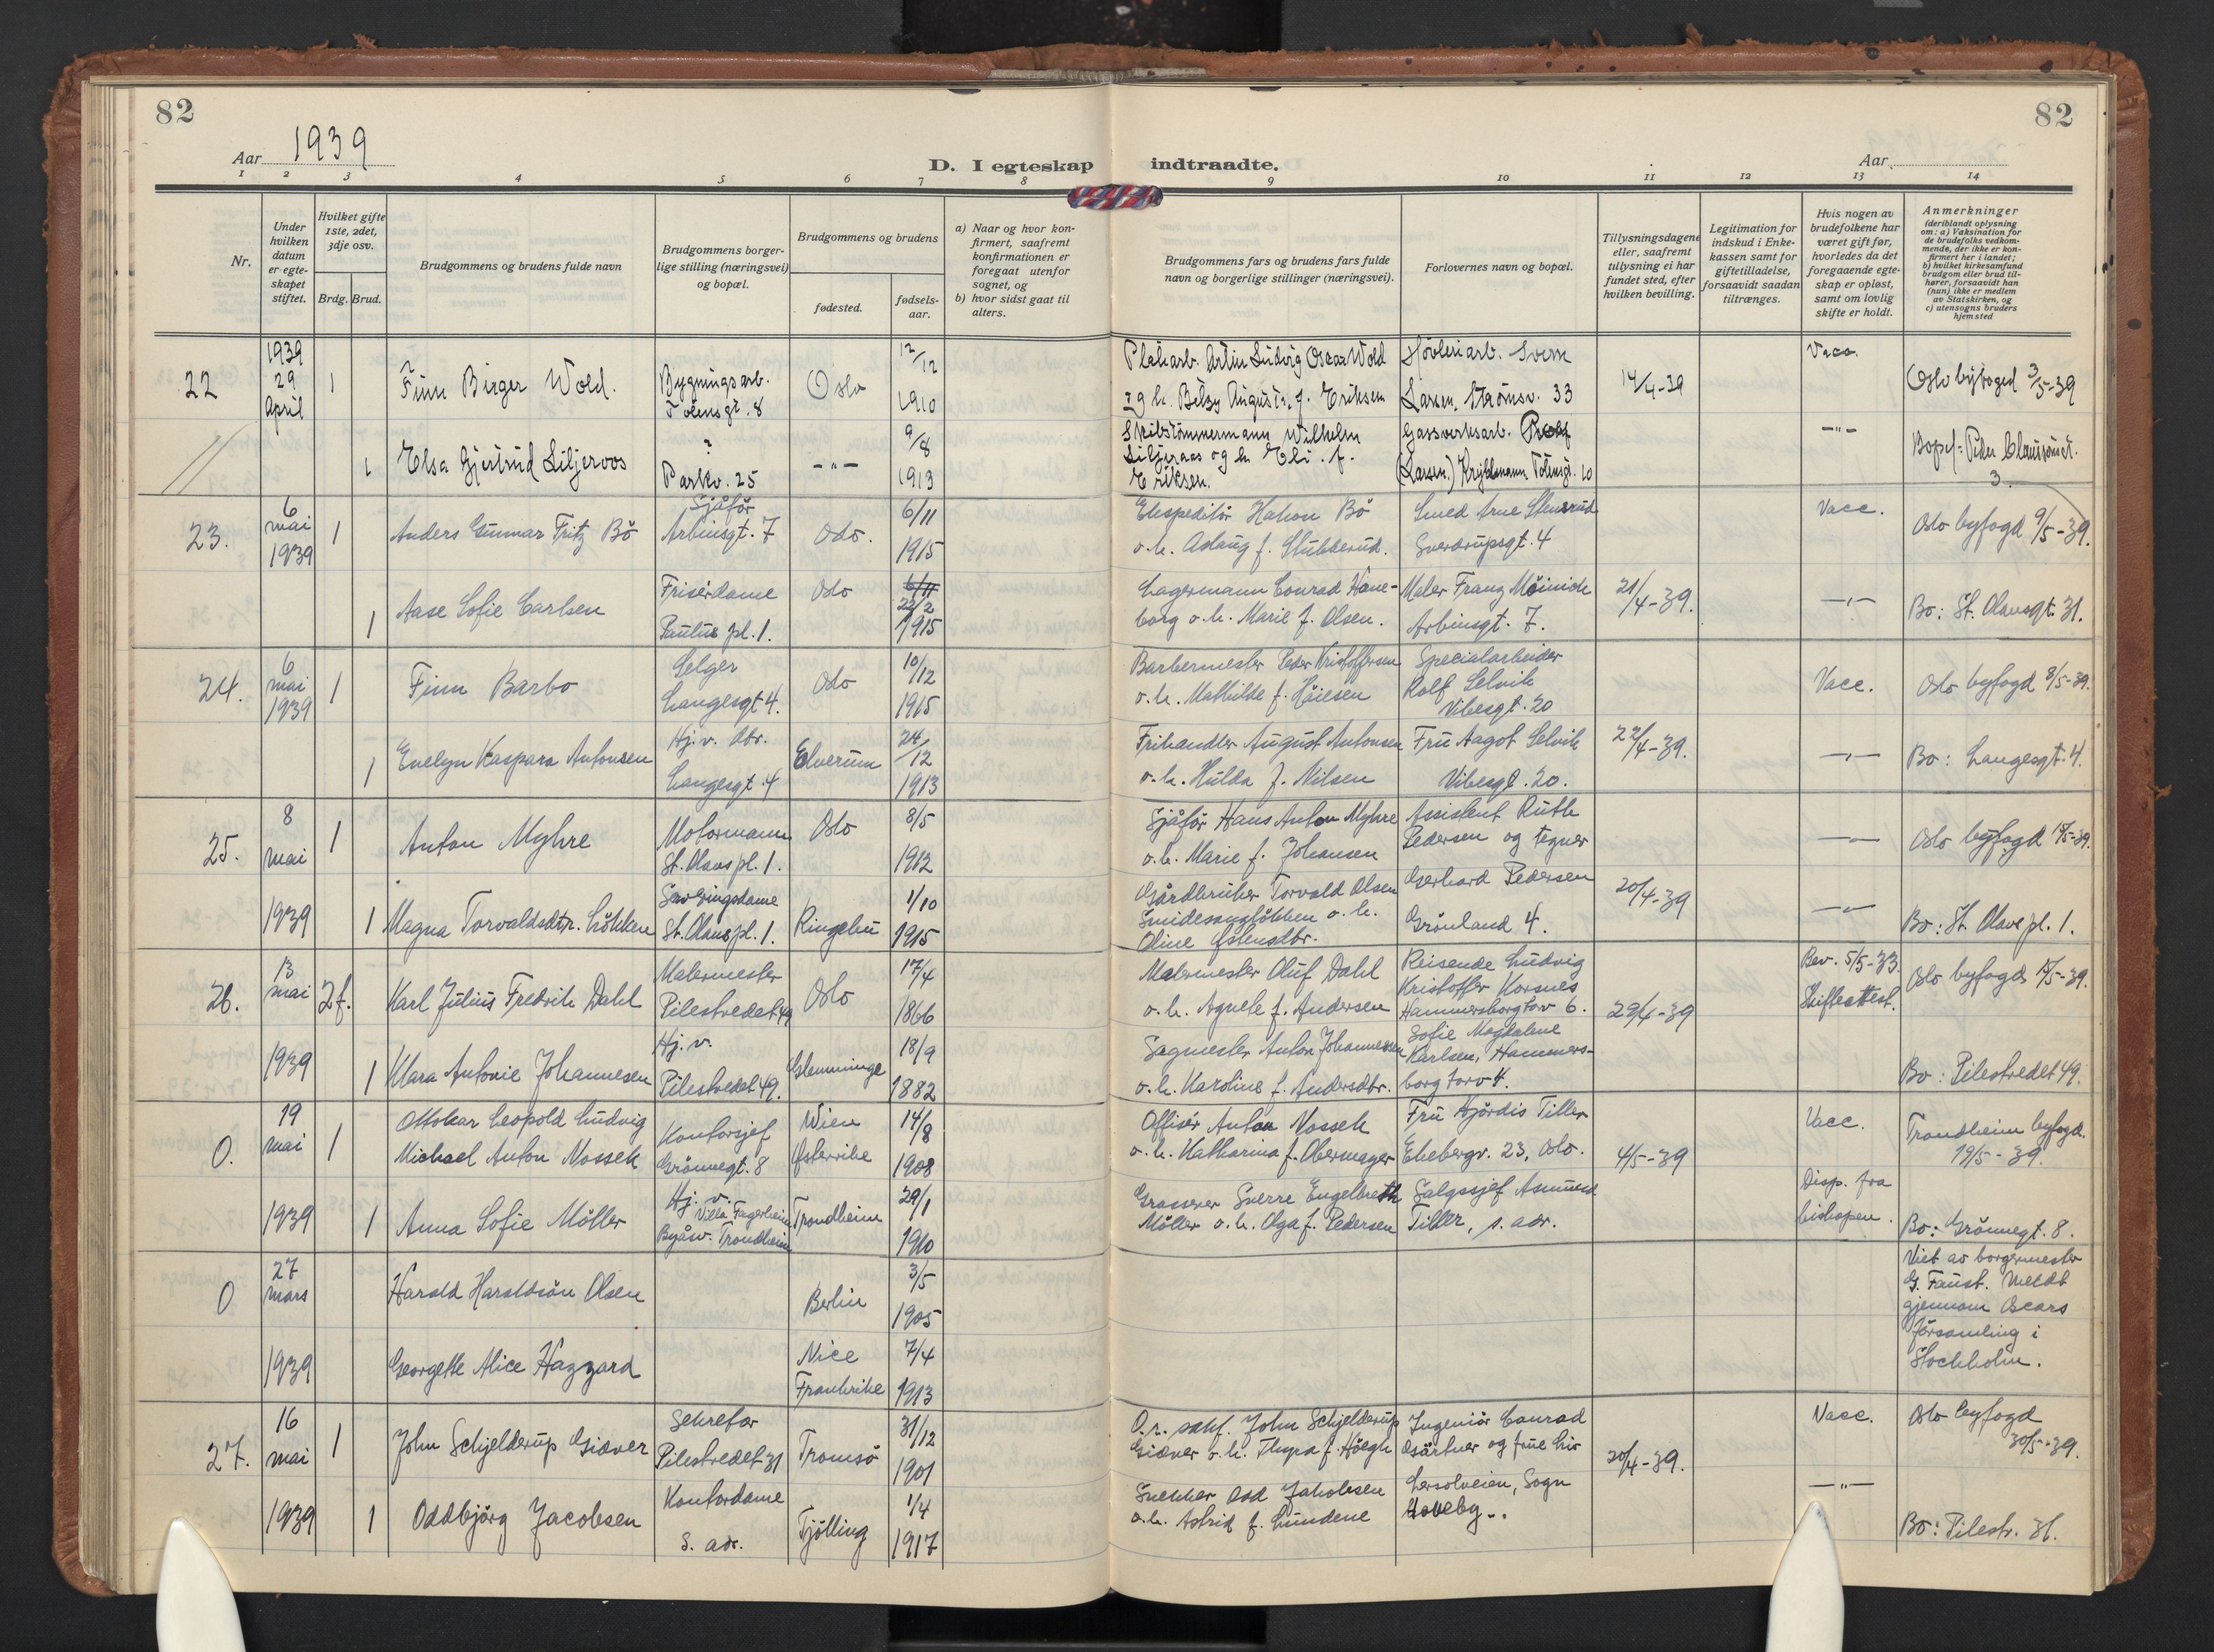 82
82
Aar 1939
D. I egteskap indtraadte.
Aar
1 2 3 4 5 6 7 8 9 10 11 12 13 14
Nr.
Under
hvilken
datum
er egte-
skapet
stiftet.
Hvilket gifte
1ste, 2det,
3dje osv.
Brdg. Brud.
Brudgommens og brudens fulde navn
Brudgommens borger-
lige stilling (næringsvei)
og bopæl.
Brudgommens og brudens
fødested.
fødsels-
aar.
a) Naar og hvor kon-
firmert, saafremt
konfirmationen er
foregaat utenfor
sognet, og
b) hvor sidst gaat til
alters.
Brudgommens fars og brudens fars fulde
navn og borgerlige stillinger (næringsvei).
Forlovernes navn og bopæl.
Tillysningsdagene
eller, saafremt
tillysning ei har
fundet sted, efter
hvilken bevilling.
Legitimation for
indskud i Enke-
kassen samt for
giftetilladelse,
forsaavidt saadan
tiltrænges.
Hvis nogen av
brudefolkene har
været gift før,
hvorledes da det
foregaaende egte-
skap er opløst,
samt om lovlig
skifte er holdt.
Anmerkninger
(deriblandt oplysning
om: a) Vaksination for
de brudefolks vedkom-
mende, der ikke er kon-
firmert her i landet;
b) hvilket kirkesamfund
brudgom eller brud til-
hører, forsaavidt han
(hun) ikke er medlem
av Statskirken, og
c) utensogns bruders
hjemsted
22
1939
29
April
1
Finn Birger Wold.
Bygningsarb.
Oslo
12/12
1910
Oscar Wold
og h. Betzy f. Eriksen
Larsen, Strømsv. 33
14/4-39
Vacc.
Oslo byfoged 3/5-39
1
Elsa Gjertrud Liljeroos
?
Parkv. 25
-"-
9/8
1913
Skibstömmermann Wilhelm
Liljeroos og h. Eli f.
Eriksen.
Gassverksarb.
(Larsen)
-"-
Bopel: Peder Claussönsgt.
3.
23.
6
mai
1939
1
Anders Gunnar Fritz Bö
Sjåför
Arbinsgt. 7
Oslo.
6/11
1915
Ekspeditör Hakon Bö
o. h. Aslaug f. Stubberud.
Smed Arne Stensrud
Sverdrupsgt. 4
Vacc.
Oslo byfogd 9/5-39.
1
Aase Sofie Carlsen
Frisérdame
Paulus pl. 1.
Oslo
6/11
22/2
1915
Lagermann Conrad Hane-
borg o. h. Marie f. Olsen.
Maler Franz
Arbinsgt. 7.
21/4-39.
-"-
Bo: St. Olavsgt. 31.
24.
6
mai
1939
1
Finn Barbo
Selger
Langesgt 4.
Oslo
10/12
1915
Barbermester Peder Kristoffersen
o. h. Mathilde f.
Specialarbeider
Rolf Selvik
Vibesgt. 20
Vacc.
Oslo byfogd 8/5-39.
1
Evelyn Kaspara Antonsen
Hj. v. dtr.
Langesgt. 4
Elverum
24/12
1913
Frihandler August Antonsen
o. h. Hulda f. Nilsen
Fru Aagot Selvik
Vibesgt. 20.
22/4-39.
-"-
Bo: Langesgt. 4.
25.
8
mai
1939
1
Anton Myhre
Motormann
St. Olavs pl. 1.
Oslo
8/5
1912
Sjåför Hans Anton Myhre
o. h. Marie f. Johansen
Assistent Ruth
Pedersen og tegner
-"-
Oslo byfogd
1
Magna Torvaldsdtr. Lökken
Serveringsdame
St. Olavs pl. 1.
Ringebu
1/10
1915
Gårdbruker Torvald Olsen
o. h.
Oline Østensdtr.
Gerhard Pedersen
Grönland 4.
20/4-39
-"-
Bo: St. Olavs pl. 1.
26.
13
mai
1939
2 f.
Karl Julius Fredrik Dahl
Malermester
Pilestredet 49
Oslo
17/4
1866
Malermester Oluf Dahl
o. h. Agnete f. Andersen
Reisende Ludvig
Kristoffer Korsnes
Hammersborg torv 6.
29/4-39
Bev. 5/5-33.
Skifteattest.
Oslo byfogd
1
Klara Antonie Johannesen
Hj. v.
Pilestredet 49.
Glemminge
18/9
1882
Sagmester Anton Johannessen
o. h. Karoline f. Andersdtr.
Sofie Magdalene
Karlsen, Hammers-
borg torv 4.
Bo: Pilestredet 49.
0.
19
mai
1939
1
Ottokar Leopold Ludvig
Michael Anton Nossek
Kontorsjef
Grönnegt. 8
Wien
Østerrike
14/8
1908
Offisér Anton Nossek
o. h. Katharina f. Obermayer
Fru Hjördis Tiller
Ekebergv. 23, Oslo.
4/5-39
Vacc.
Trondheim byfogd.
19/5-39.
1
Anna Sofie Möller
Hj. v.
Villa Fagerheim
Byåsv. Trondheim
Trondheim
29/1
1910
Grosserer Sverre Engelbreth
Möller o. h. Olga f. Pedersen
Salgssjef Asmund
Tiller, s. adr.
Disp. fra
biskopen.
Bo: Grönnegt. 8.
0
27
mars
1939
Harald Haraldsön Olsen
Berlin
3/5
1905
Viet av borgermester
G. Faust. Meldt
gjennom Oscars
församling i
Stockholm.
Georgette Alice Hazzard
Nice
Frankrike
7/4
1913
27.
16
mai
1939
1
John Schjelderup Giæver
Sekretær
Pilestredet 31
Tromsö
31/12
1901
O.r. sakf. John Schjelderup
Giæver o. h. Thyra f. Höegh
Ingeniör Conrad
Gärtner og frue Liv
20/4-39.
Vacc.
Oslo byfogd
30/5-39.
1
Oddbjörg Jacobsen
Kontordame
s. adr.
Tjölling
1/4
1917
Snekker Odd Jakobsen
o. h. Astrid f. Lundene
Lersolveien, Sogn
Haveby..
-"-
Bo: Pilestr. 31.